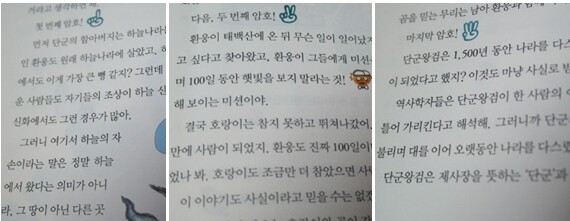 거라고 생각하면 돼.
첫 번째 암호!
먼저 단군의 할아버지는 하늘나라
인 환웅도 원래 하늘나라에 살았고, 하
에서도 이게 가장 큰 뻥 같지? 그런데
운 사람들도 자기들의 조상이 하늘 신
신화에서도 그런 경우가 많아.
그러니 여기서 하늘의 자
손이라는 말은 정말 하늘
에서 왔다는 의미가 아니
라, 그 땅이 아닌 다른 곳
다음, 두 번째 암호!
환웅이 태백산에 온 뒤 무슨 일이 일어났지
고 싶다고 찾아왔고, 환웅이 그들에게 미션
며 100일 동안 햇빛을 보지 말라는 것!
해 보이는 미션이야.
결국 호랑이는 참지 못하고 뛰쳐나갔어.
만에 사람이 되었지. 환웅도 진짜 100일이
었나 봐. 호랑이도 조금만 더 참았으면 사람
이 이야기도 사실이라고 믿을 수는 없겠
곰을 믿는 무리는 남아 환웅과 함께
마지막 암호!
단군왕검은 1,500년 동안 나라를 다스
이 되었다고 했지? 이것도 마냥 사실로 받
역사학자들은 단군왕검이 한 사람의 이
틀어 가리킨다고 해석해. 그러니까 단군
불리며 대를 이어 오랫동안 나라를 다스렸
단군왕검은 제사장을 뜻하는 '단군'과